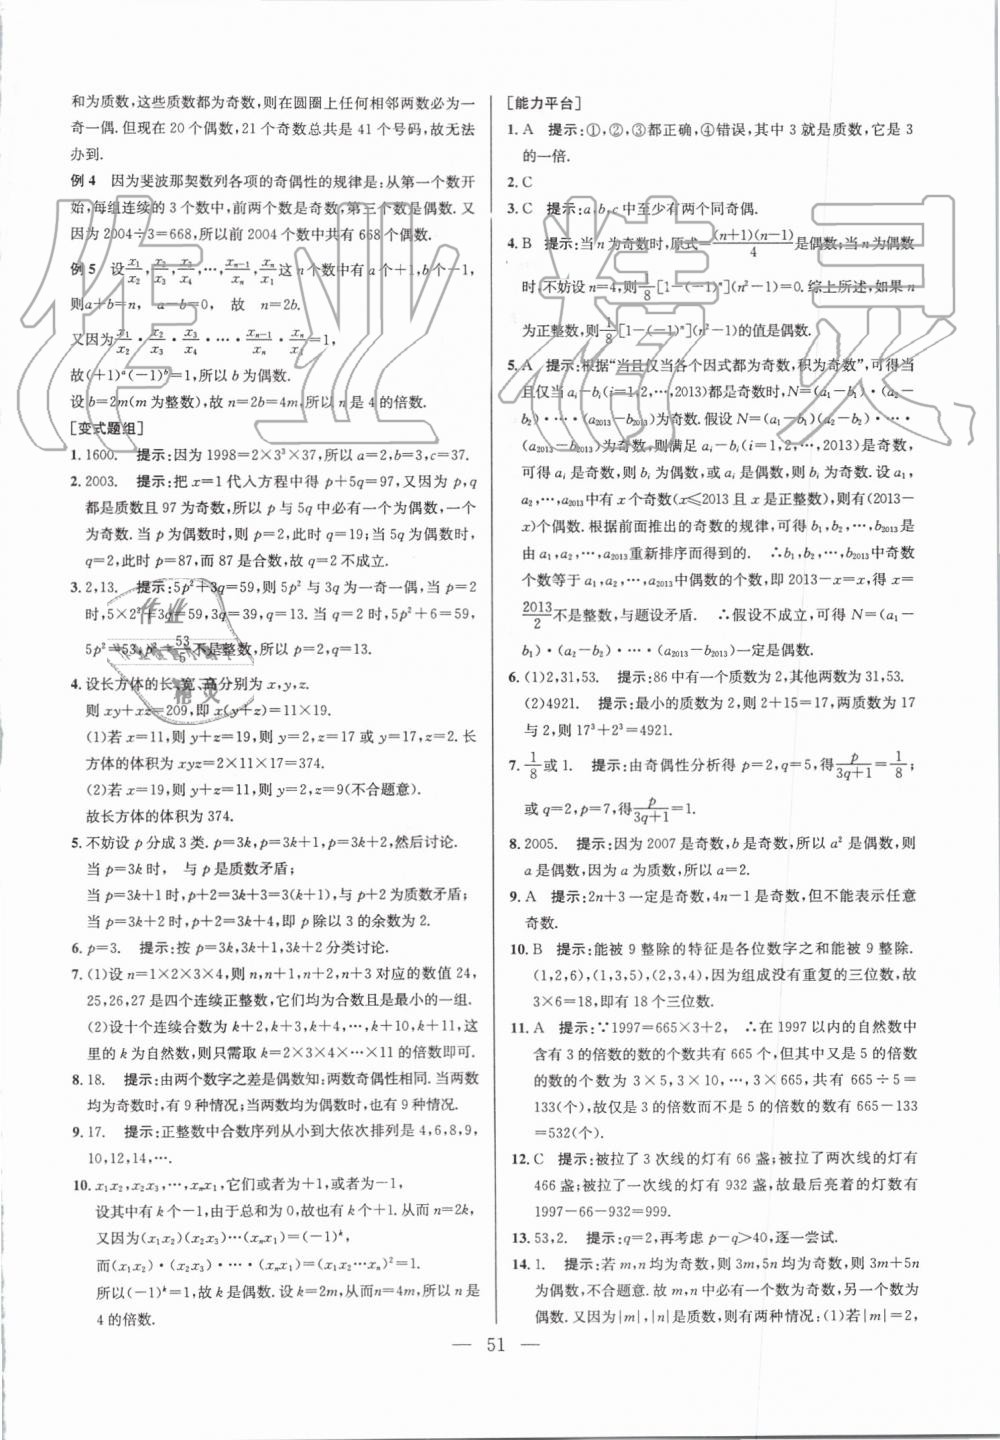 和为质数,这些质数都为奇数,则在圆圈上任何相邻两数必为一
奇一偶.但现在 20 个偶数,21 个奇数总共是 41 个号码,故无法
办到.
例 4 因为斐波那契数列各项的奇偶性的规律是:从第一个数开
始,每组连续的 3 个数中,前两个数是奇数,第三个数是偶数.又
因为 2004÷3=668,所以前 2004 个数中共有 668 个偶数.
例 5 设x₁/x₂,x₂/x₃,x₃/x₄,…,xₙ₋₁/xₙ,xₙ/x₁这 n 个数中有 a 个+1,b 个-1,
则a+b=n, a-b=0, 故 n=2b.
又因为x₁/x₂·x₂/x₃·x₃/x₄·…·xₙ₋₁/xₙ·xₙ/x₁=1,
故(+1)ᵃ(-1)ᵇ=1,所以 b 为偶数.
设 b=2m(m 为整数),故 n=2b=4m,所以 n 是 4 的倍数.
[变式题组]
1. 1600. 提示:因为 1998=2×3³×37,所以 a=2,b=3,c=37.
2. 2003. 提示:把 x=1 代入方程中得 p+5q=97,又因为 p,q
都是质数且 97 为奇数,所以 p 与 5q 中必有一个为偶数,一个
为奇数.当 p 为偶数时,则 p=2,此时 q=19;当 5q 为偶数时,
q=2,此时 p=87,而 87 是合数,故 q=2 不成立.
3. 2,13. 提示:5p²+3q=59,则 5p² 与 3q 为一奇一偶,当 p=2
时,5×2²+3q=59,3q=39,q=13.当 q=2 时,5p²+6=59,
5p²=53,p²=53/5不是整数,所以 p=2,q=13.
4. 设长方体的长、宽、高分别为 x,y,z.
则 xy+xz=209,即 x(y+z)=11×19.
(1)若 x=11,则 y+z=19,则 y=2,z=17 或 y=17,z=2.长
方体的体积为 xyz=2×11×17=374.
(2)若 x=19,则 y+z=11,则 y=2,z=9(不合题意).
故长方体的体积为 374.
5. 不妨设 p 分成 3 类.p=3k,p=3k+1,p=3k+2,然后讨论.
当 p=3k 时, 与 p 是质数矛盾;
当 p=3k+1 时,p+2=3k+3=3(k+1),与 p 为质数矛盾;
当 p=3k+2 时,p+2=3k+4,即 p 除以 3 的余数为 2.
6. p=3. 提示:按 p=3k,3k+1,3k+2 分类讨论.
7. (1)设 n=1×2×3×4,则 n,n+1,n+2,n+3 对应的数值 24,
25,26,27 是四个连续正整数,它们均为合数且是最小的一组.
(2)设十个连续合数为 k+2,k+3,k+4,…,k+10,k+11,这
里的 k 为自然数,则只需取 k=2×3×4×…×11 的倍数即可.
8. 18. 提示:由两个数字之差是偶数知:两数奇偶性相同.当两数
均为奇数时,有 9 种情况;当两数均为偶数时,也有 9 种情况.
9. 17. 提示:正整数中合数序列从小到大依次排列是 4,6,8,9,
10,12,14,….
10. x₁x₂,x₂x₃,…,xₙx₁,它们或者为+1,或者为-1,
设其中有 k 个-1,由于总和为 0,故也有 k 个+1.从而 n=2k,
又因为(x₁x₂)(x₂x₃)…(xₙx₁)=(-1)ᵏ,
而(x₁x₂)·(x₂x₃)·…·(xₙx₁)=(x₁x₂…xₙ)²=1.
所以(-1)ᵏ=1,故 k 是偶数.设 k=2m,从而n=4m,所以 n 是
4 的倍数.
[能力平台]
1. A 提示:①,②,③都正确,④错误,其中 3 就是质数,它是 3
的一倍.
2. C
3. C 提示:a,b,c 中至少有两个同奇偶.
4. B 提示:当 n 为奇数时,原式=(n+1)(n-1)/4是偶数;当 n 为偶数
时,不妨设 n=4,则1/8[1-(-1)ⁿ](n²-1)=0.综上所述,如果 n
为正整数,则1/8[1-(-1)ⁿ](n²-1)的值是偶数.
5. A 提示:根据“当且仅当各个因式都为奇数,积为奇数”,可得当
且仅当 aᵢ-bᵢ(i=1,2,…,2013)都是奇数时,N=(a₁-b₁)·(a₂-
b₂)·…·(a₂₀₁₃-b₂₀₁₃)为奇数.假设 N=(a₁-b₁)(a₂-b₂)·…·
(a₂₀₁₃-b₂₀₁₃)为奇数,则满足 aᵢ-bᵢ(i=1,2,…,2013)是奇数,
可得 aᵢ是奇数,则 bᵢ为偶数,或 aᵢ是偶数,则 bᵢ为奇数.设 a₁,
a₂,…,a₂₀₁₃中有 x 个奇数(x≤2013 且 x 是正整数),则有(2013-
x)个偶数.根据前面推出的奇数的规律,可得 b₁,b₂,…,b₂₀₁₃是
由 a₁,a₂,…,a₂₀₁₃重新排序而得到的. ∴b₁,b₂,…,b₂₀₁₃中奇数
个数等于 a₁,a₂,…,a₂₀₁₃中偶数的个数,即 2013-x=x,得 x=
2013/2不是整数,与题设矛盾. ∴假设不成立,可得 N=(a₁-
b₁)·(a₂-b₂)·…·(a₂₀₁₃-b₂₀₁₃)一定是偶数.
6. (1)2,31,53. 提示:86 中有一个质数为 2,其他两数为 31,53.
(2)4921. 提示:最小的质数为 2,则 2+15=17,两质数为 17
与 2,所以 17³+2³=4921.
7. 1/8或 1. 提示:由奇偶性分析得 p=2,q=5,得p/(3q+1)=1/8;
或 q=2,p=7,得p/(3q+1)=1.
8. 2005. 提示:因为 2007 是奇数,b 是奇数,所以 a² 是偶数,则
a 是偶数,因为 a 为质数,所以 a=2.
9. A 提示:2n+3 一定是奇数,4n-1 是奇数,但不能表示任意
奇数.
10. B 提示:能被 9 整除的特征是各位数字之和能被 9 整除.
(1,2,6),(1,3,5),(2,3,4),因为组成没有重复的三位数,故
3×6=18,即有 18 个三位数.
11. A 提示:∵1997=665×3+2, ∴在 1997 以内的自然数中
含有 3 的倍数的数的个数共有 665 个,但其中又是 5 的倍数
的数的个数为 3×5,3×10,…,3×665,共有 665÷5=
133(个),故仅是 3 的倍数而不是 5 的倍数的数有 665-133
=532(个).
12. C 提示:被拉了 3 次线的灯有 66 盏;被拉了两次线的灯有
466 盏;被拉了一次线的灯有 932 盏,故最后亮着的灯数有
1997-66-932=999.
13. 53,2. 提示:q=2,再考虑 p-q>40,逐一尝试.
14. 1. 提示:若 m,n 均为奇数,则 3m,5n 均为奇数,则 3m+5n
为偶数,不合题意.故 m,n 中必有一个数为奇数,另一个数为
偶数.又因为|m|,|n|是质数,则有两种情况:(1)若|m|=2,
— 51 —
作业精灵
作业
精灵